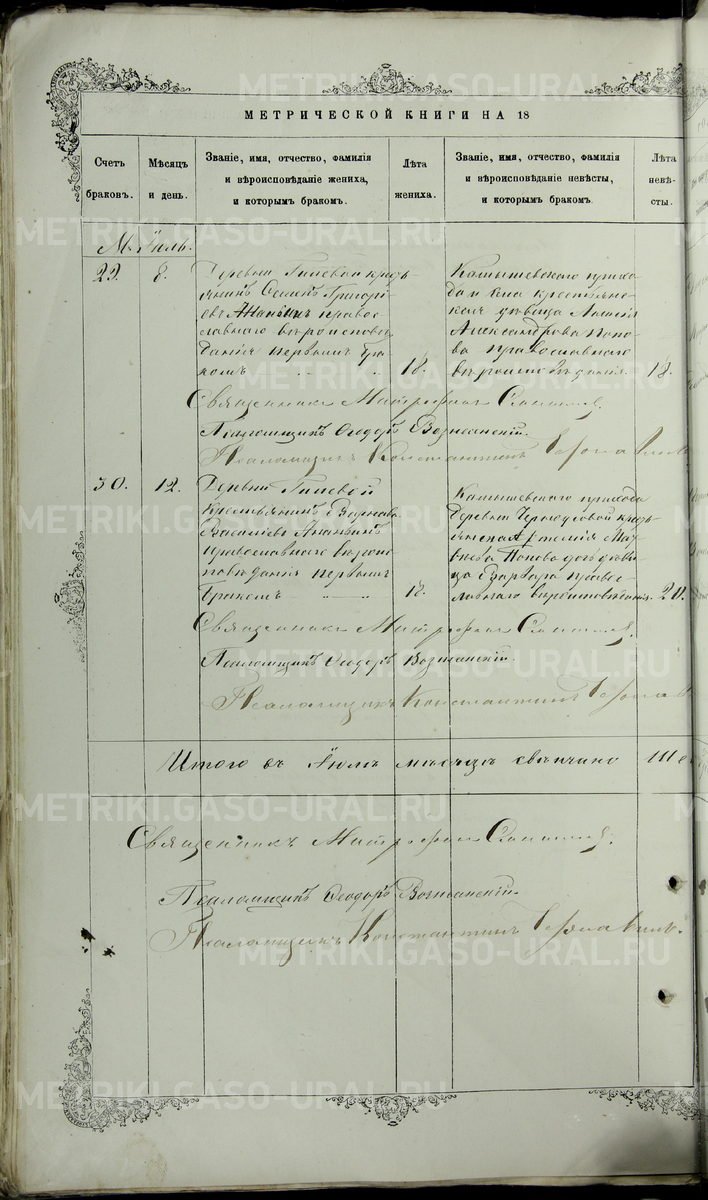 МЕТРИЧЕСКОЙ КНИГИ НА 18
Счетъ браковъ.
Мѣсяцъ и день.
Званіе, имя, отчество, фамилія и вѣроисповѣданіе жениха, и которымъ бракомъ.
Лѣта жениха.
Званіе, имя, отчество, фамилія и вѣроисповѣданіе невѣсты, и которымъ бракомъ.
Лѣта невѣсты.
М. Іюль.
29.
8.
Деревни Гилевой крестьянинъ
Семенъ Григорі-
евъ Ананьинъ правос-
лавнаго вѣроисповѣ-
данія первымъ бра-
комъ
18.
Камышевскаго прихо-
да
крестьянс-
кая дѣвица
Александрова Попо-
ва православнаго
вѣроисповѣданія.
18.
Священникъ Митрофанъ
Псаломщикъ Ѳеодоръ Вознесенскій.
Псаломщикъ Константинъ
30.
12.
Деревни Гилевой
крестьянинъ
Василіевъ Ананьинъ
православнаго вѣроис-
повѣданія первымъ
бракомъ
18.
Камышевскаго прихода
деревни Черноусовой
Артемія Мат-
вѣева Попова дочь дѣви-
ца Варвара правос-
лавнаго вѣроисповѣданія.
20.
Священникъ Митрофанъ
Псаломщикъ Ѳеодоръ Вознесенскій.
Псаломщикъ Константинъ
Итого въ Іюлѣ мѣсяцѣ свѣнчано
Священникъ Митрофанъ
Псаломщикъ Ѳеодоръ Вознесенскій.
Псаломщикъ Константинъ
METRIKI.GASO-URAL.RU